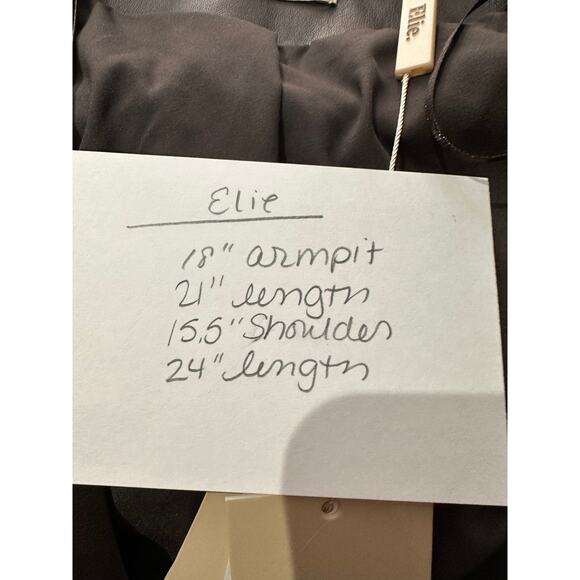 Elie.
Elie
18" armpit
21" length
15.5" Shoulder
24" length